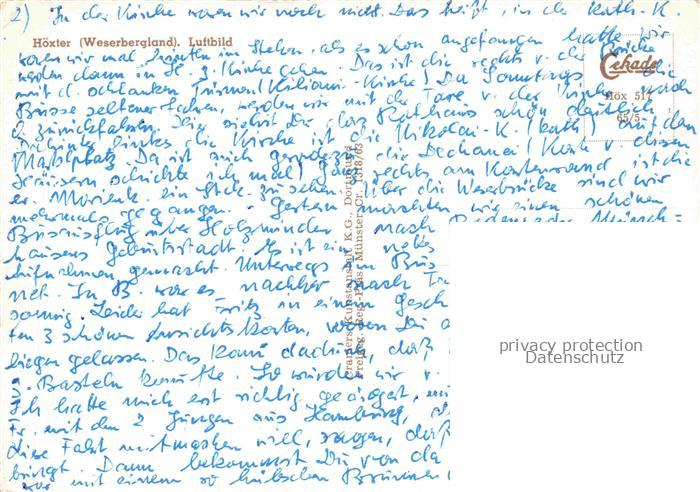 2) In der Kirche waren wir noch nicht. Das heißt, in der Kath. K.
Höxter (Weserbergland), Luftbild
waren wir mal hinten im Stehen, als es schon angefangen hatte. wir
werden dann in St. Kirche gehen. Das ist die rechts v. der Brücke
mit d. schlanken Türmen (Kiliani-Kirche) Da Sonntags die
Busse seltener fahren, werden wir mit der Taxe v. der Kirche nach
zurückfahren. Hier siehst Du das Rathaus schön deutlich
links die Kirche ist die Nikolai-K. (kath) auf dem
Marktplatz. Da ist auch die Dechanei (Karte v. diesen
Häusern schickte ich mal) Ganz rechts am Kartenrand ist die
ev. Marienk. ein Stck. zu sehen. Über die Weserbrücke sind wir
mehrmals gegangen. Gestern machten wir einen schönen
Busausflug über Holzminden nach Bodenwerder Münch-
hausens Geburtsstadt. Es ist ein
Aufnahmen gemacht. Unterwegs im Bus
net. In B. war es nachher
sonnig. Leider hat Fritz in einem Gesch
ten 3 schönen Ansichtskarten, wovon Du
liegen gelassen. Das kam dadurch, daß
Basteln kaufte. So würde wir v.
Ich hatte mich erst richtig geärgert,
Fr. mit den 2 Jungen aus Hamburg,
diese Fahrt mitmachen will, sagen, daß
bringt. Dann bekommst Du von da
mit einem so hübschen Brunnen
Cekade
Höx 511
65/5
Cramers Kunstanstalt K.G., Dortmund
Freigeg. Reg.-Präs. Münster Ct. 1318/63
privacy protection
Datenschutz